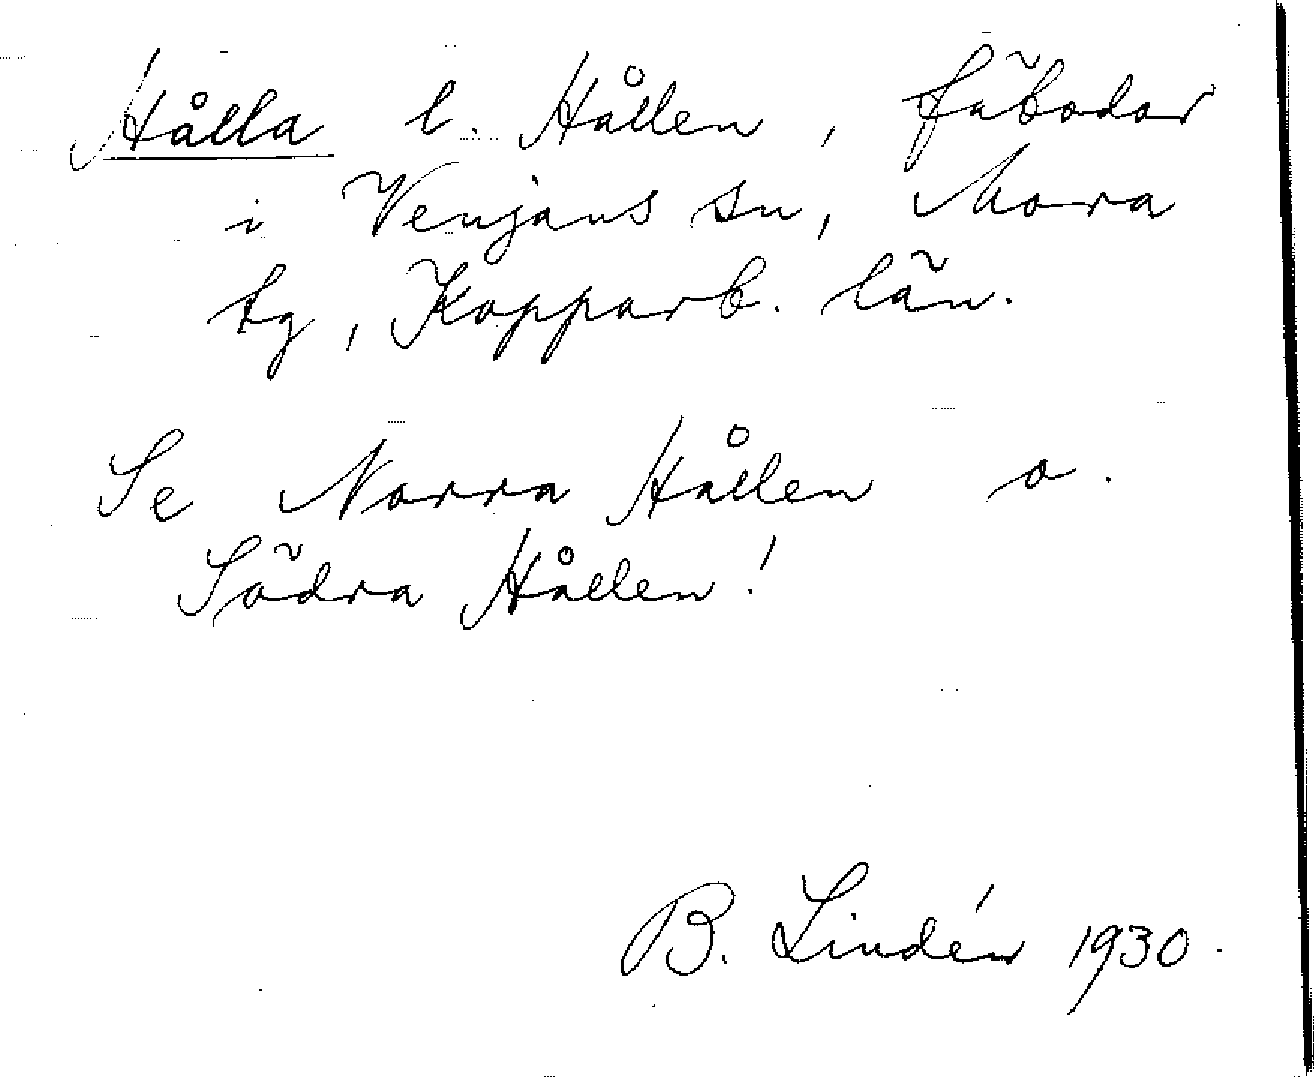 Hålla l. Hållen, fäbodar
i Venjans sn, Mora
tg, Kopparb. län.
Se Norra Hållen o.
Södra Hållen!
B. Lindén 1930.